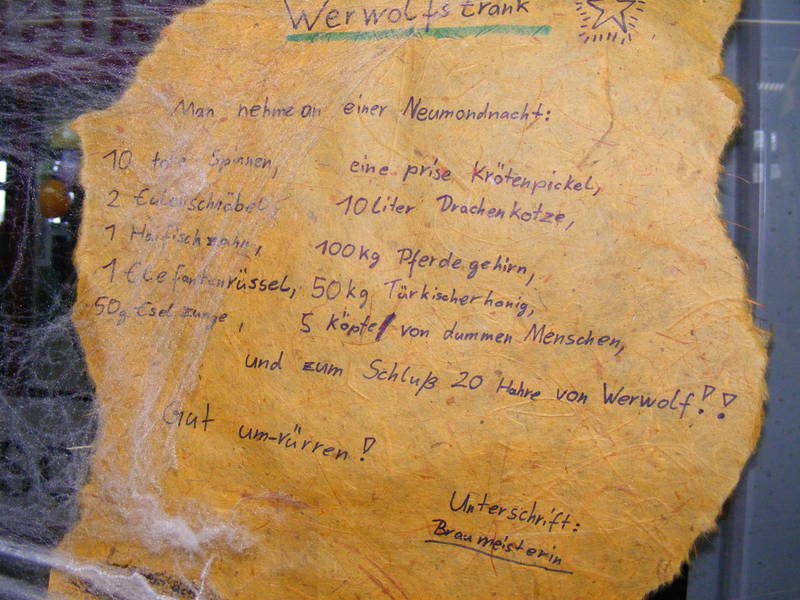 Werwolfstrank
Man nehme an einer Neumondnacht:
10 tote Spinnen, eine prise Krötenpickel,
2 Eulenschnäbel, 10 Liter Drachenkotze,
1 Haifischzahn, 100kg Pferdegehirn,
1 Elefantenrüssel, 50kg Türkischerhonig,
50g Eselzunge, 5 Köpfe von dummen Menschen,
und zum Schluß 20 Hahre von Werwolf!!
Gut um-rürren!
Unterschrift:
Braumeisterin